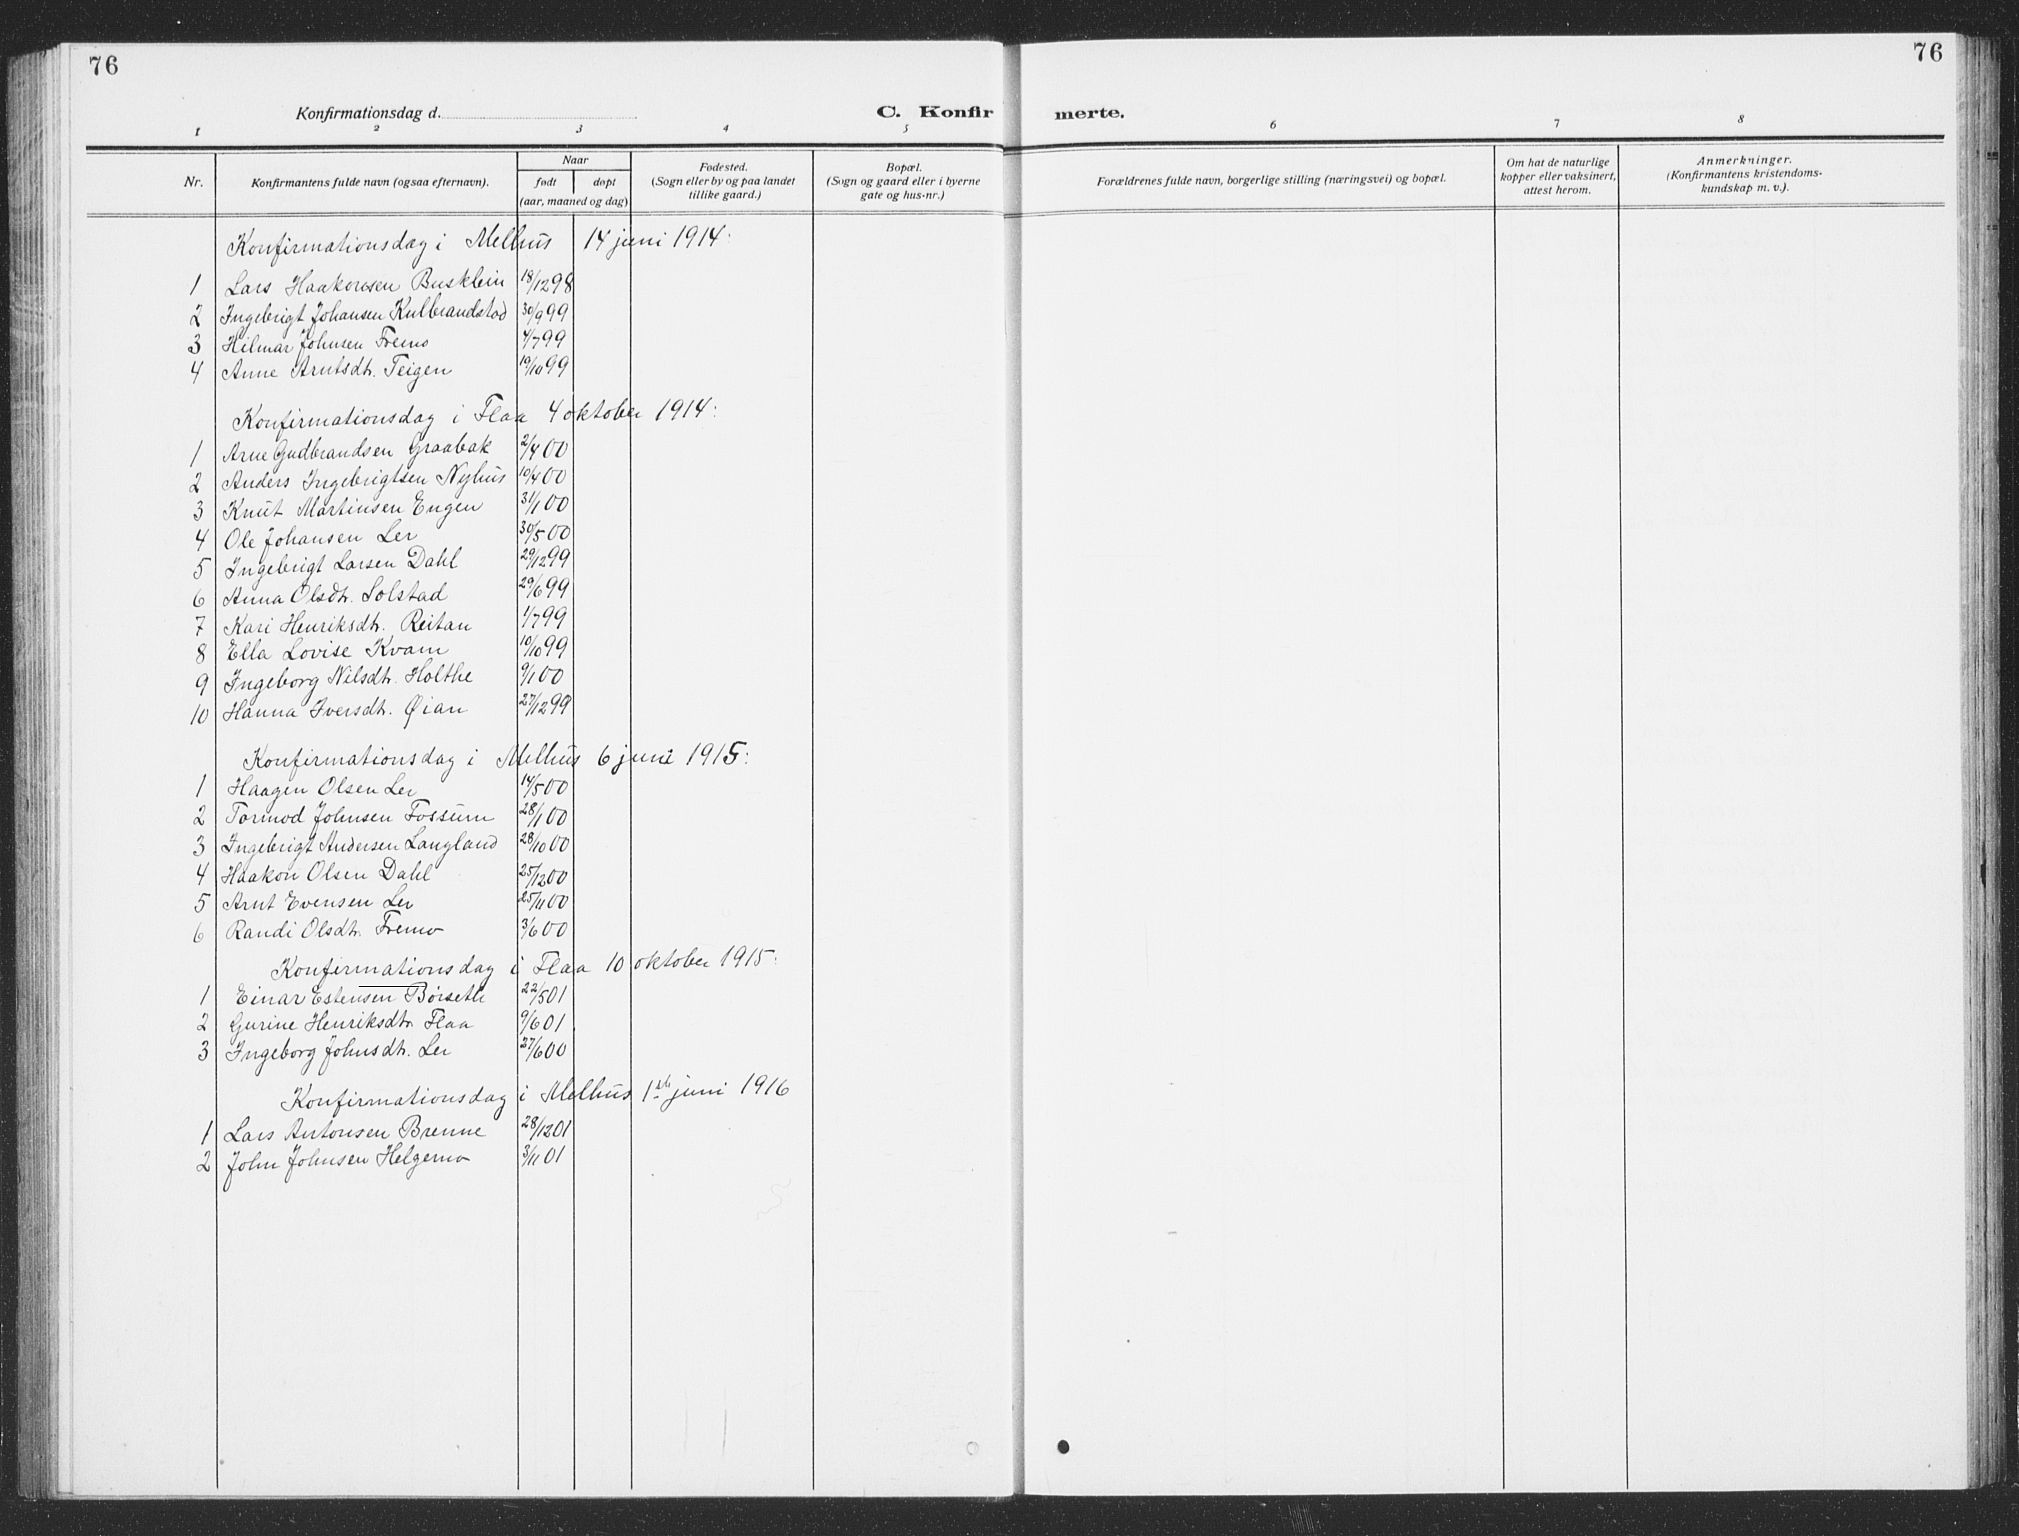 76
76
Konfirmationsdag d.
C. Konfir
merte.
1 2 3 4 5 6 7 8
Nr.
Konfirmantens fulde navn (ogsaa efternavn).
Naar
født døpt
(aar, maaned og dag)
Fødested.
(Sogn eller by og paa landet
tillike gaard.)
Bopæl.
(Sogn og gaard eller i byerne
gate og hus-nr.)
Forældrenes fulde navn, borgerlige stilling (næringsvei) og bopæl.
Om hat de naturlige
kopper eller vaksinert,
attest herom.
Anmerkninger.
(Konfirmantens kristendoms-
kundskap m. v.).
Konfirmationsdag i Melhus 14 juni 1914:
1 Lars Haakonsen Busklein 18/12 98
2 Ingebrigt Johansen Kulbrandstad 30/9 99
3 Hilmar Johnsen Fremo 4/7 99
4 Anne Arntsdtr. Teigen 19/10 99
Konfirmationsdag i Flaa 4 oktober 1914:
1 Arne Gudbrandsen Graabak 2/4 00
2 Anders Ingebrigtsen Nyhus 10/4 00
3 Knut Martinsen Engen 31/1 00
4 Ole Johansen Ler 30/5 00
5 Ingebrigt Larsen Dahl 29/12 99
6 Anna Olsdtr. Solstad 29/6 99
7 Kari Henriksdtr. Reitan 1/7 99
8 Ella Lovise Kvam 10/10 99
9 Ingeborg Nilsdtr. Holthe 9/1 00
10 Hanna Iversdtr. Øian 27/12 99
Konfirmationsdag i Melhus 6 juni 1915:
1 Haagen Olsen Ler 14/5 00
2 Tormod Johnsen Fossum 28/1 00
3 Ingebrigt Andersen Langland 28/10 00
4 Haakon Olsen Dahl 25/12 00
5 Arnt Evensen Ler 25/11 00
6 Randi Olsdtr. Fremo 3/6 00
Konfirmationsdag i Flaa 10 oktober 1915:
1 Einar Estensen Børseth 22/5 01
2 Gurine Henriksdtr Flaa 9/6 01
3 Ingeborg Johnsdtr. Ler 27/6 00
Konfirmationsdag i Melhus 1ste juni 1916
1 Lars Antonsen Brenne 28/12 01
2 John Johnsen Helgemo 3/11 01